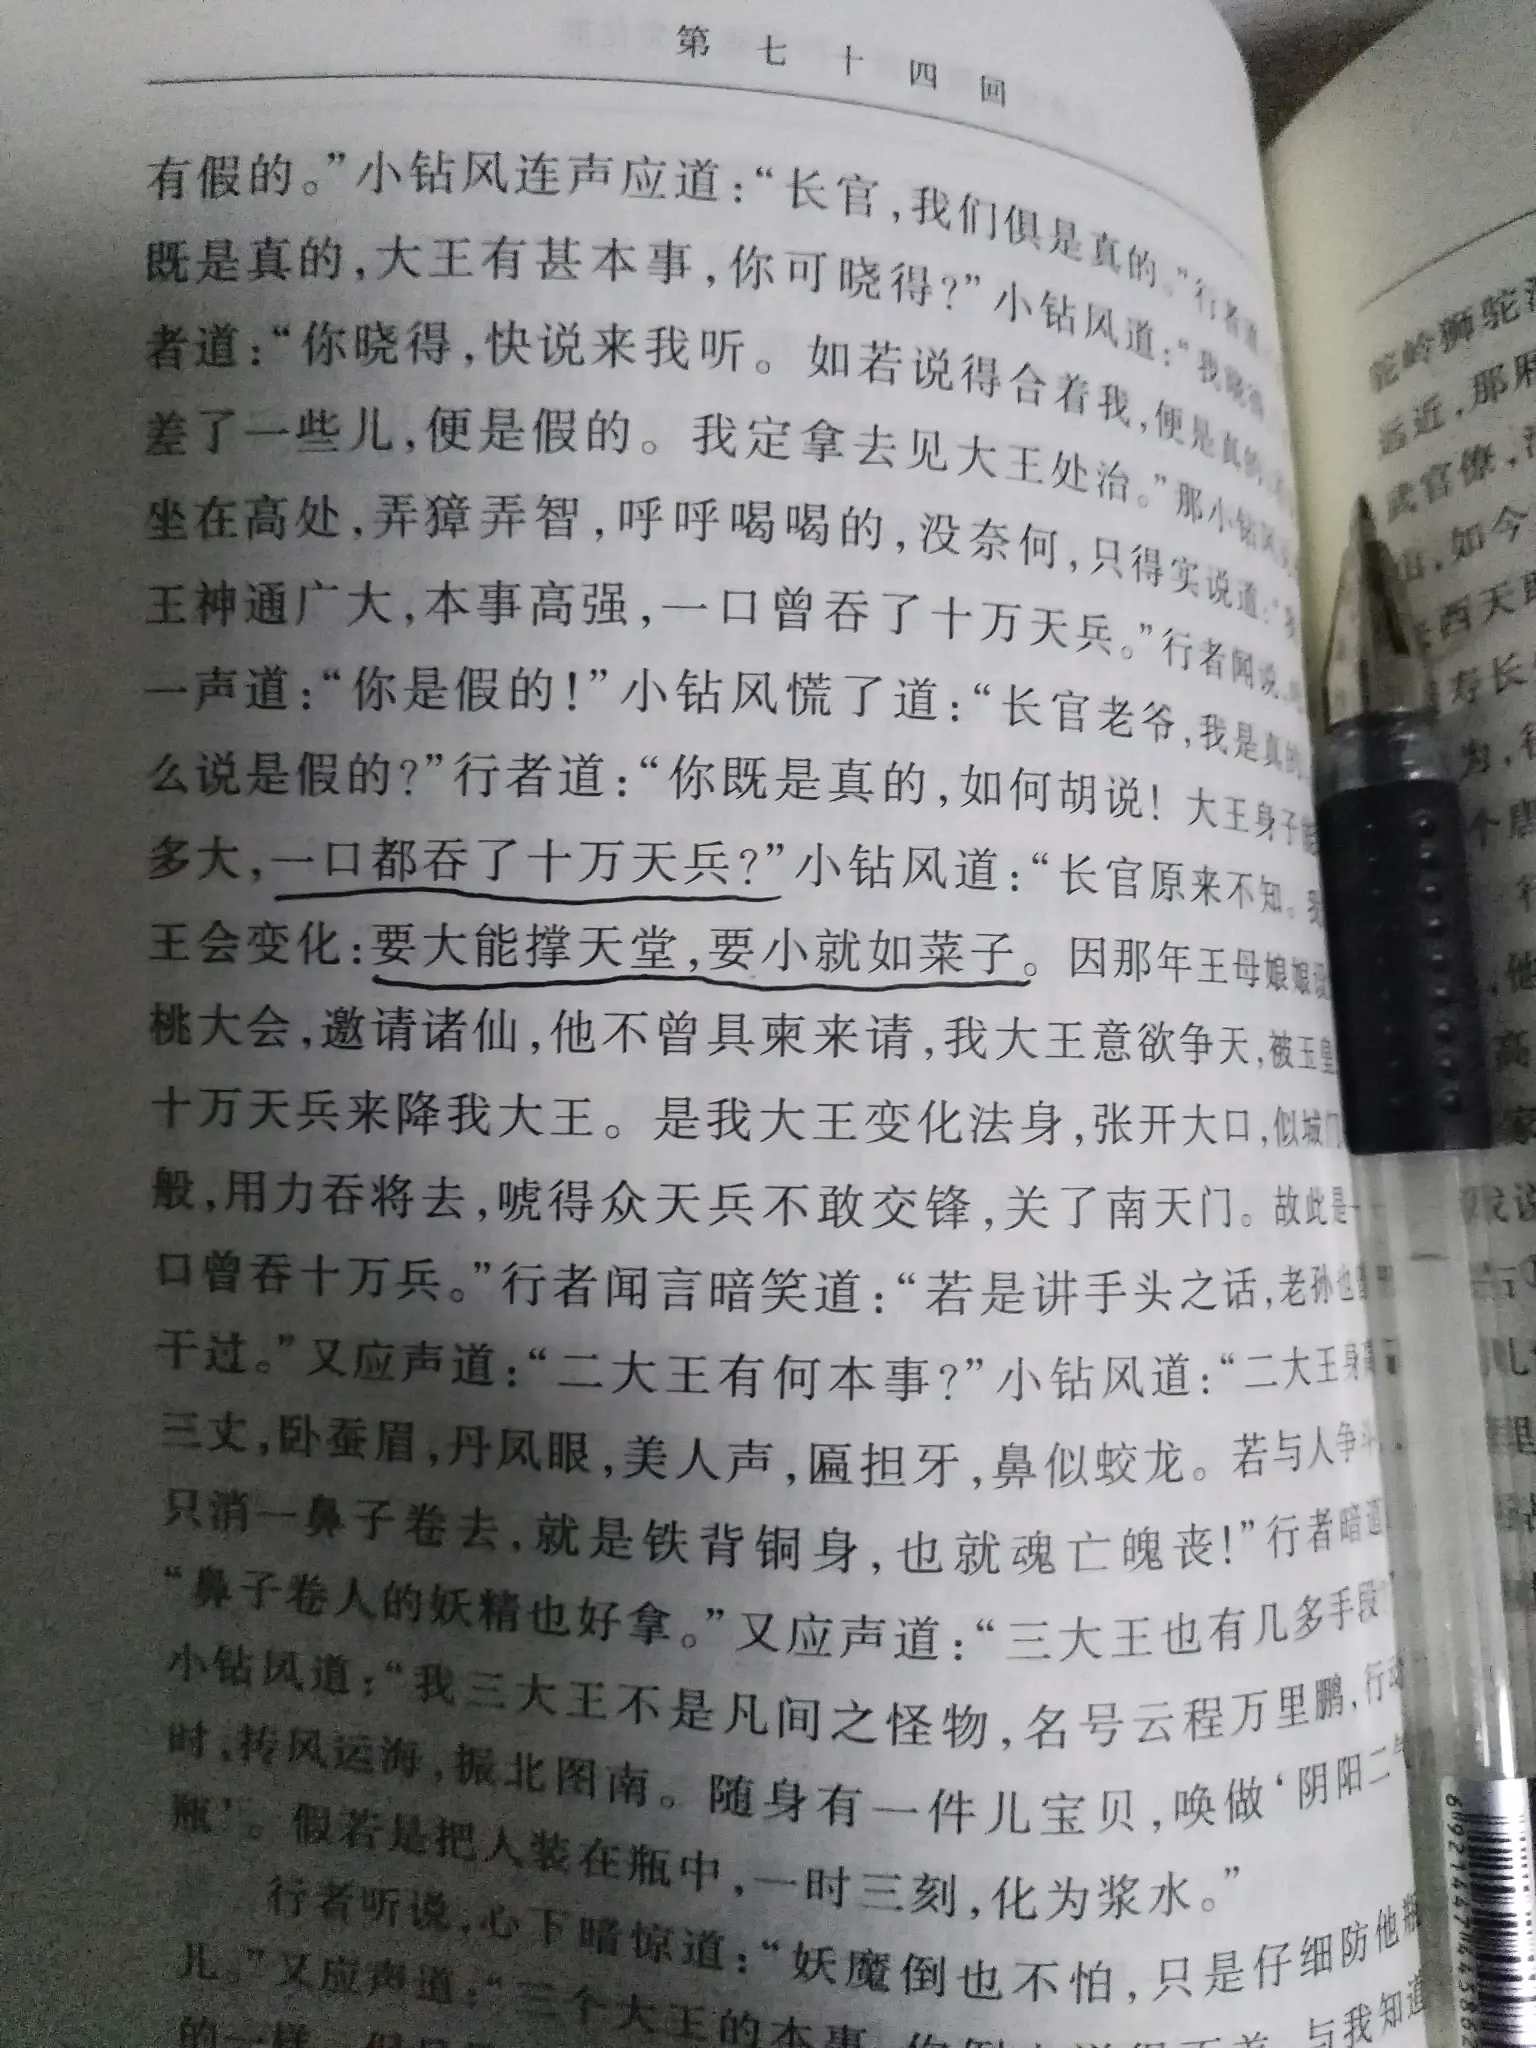 第七十四回
有假的。”小钻风连声应道：“长官，我们俱是真的。”行者道：
既是真的，大王有甚本事，你可晓得？”小钻风道：“我晓得
者道：“你晓得，快说来我听。如若说得合着我，便是真的，
差了一些儿，便是假的。我定拿去见大王处治。”那小钻风
坐在高处，弄獐弄智，呼呼喝喝的，没奈何，只得实说道：“
王神通广大，本事高强，一口曾吞了十万天兵。”行者闻说，
一声道：“你是假的！”小钻风慌了道：“长官老爷，我是真的
么说是假的？”行者道：“你既是真的，如何胡说！大王身子能
多大，一口都吞了十万天兵？”小钻风道：“长官原来不知。
王会变化：要大能撑天堂，要小就如菜子。因那年王母娘娘设
桃大会，邀请诸仙，他不曾具柬来请，我大王意欲争天，被玉皇
十万天兵来降我大王。是我大王变化法身，张开大口，似城门
般，用力吞将去，唬得众天兵不敢交锋，关了南天门。故此是一
口曾吞十万兵。”行者闻言暗笑道：“若是讲手头之话，老孙也
干过。”又应声道：“二大王有何本事？”小钻风道：“二大王身高
三丈，卧蚕眉，丹凤眼，美人声，匾担牙，鼻似蛟龙。若与人争斗
只消一鼻子卷去，就是铁背铜身，也就魂亡魄丧！”行者暗道
“鼻子卷人的妖精也好拿。”又应声道：“三大王也有几多手段
小钻风道：“我三大王不是凡间之怪物，名号云程万里鹏，行动
时，抟风运海，振北图南。随身有一件儿宝贝，唤做‘阴阳二气
瓶’。假若是把人装在瓶中，一时三刻，化为浆水。”
行者听说，心下暗惊道：“妖魔倒也不怕，只是仔细防他瓶
儿。”又应声道：“三个大王的本事，
与我知道
的一样
驼岭狮驼
远近，那
武官僚，
山，如今
西天
寿长
为，
个唐
他
高
家
说
6921447445882